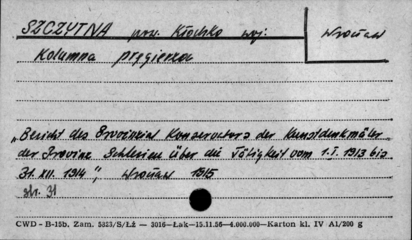 SZCZYTNA pow. Kłodzko woj: Wrocław
Kolumna pręgierza
„Bericht des Provinzial Konservators der Kunstdenkmäler
der Provinz Schlesien über die Tätigkeit vom 1.I.1913 bis
31.XII.1914", Wrocław 1915
str. 31
CWD – B-15b. Zam. 5823/S/Łż — 3016—Łak—15.11.56—4.000.000—Karton kl. IV A1/200 g